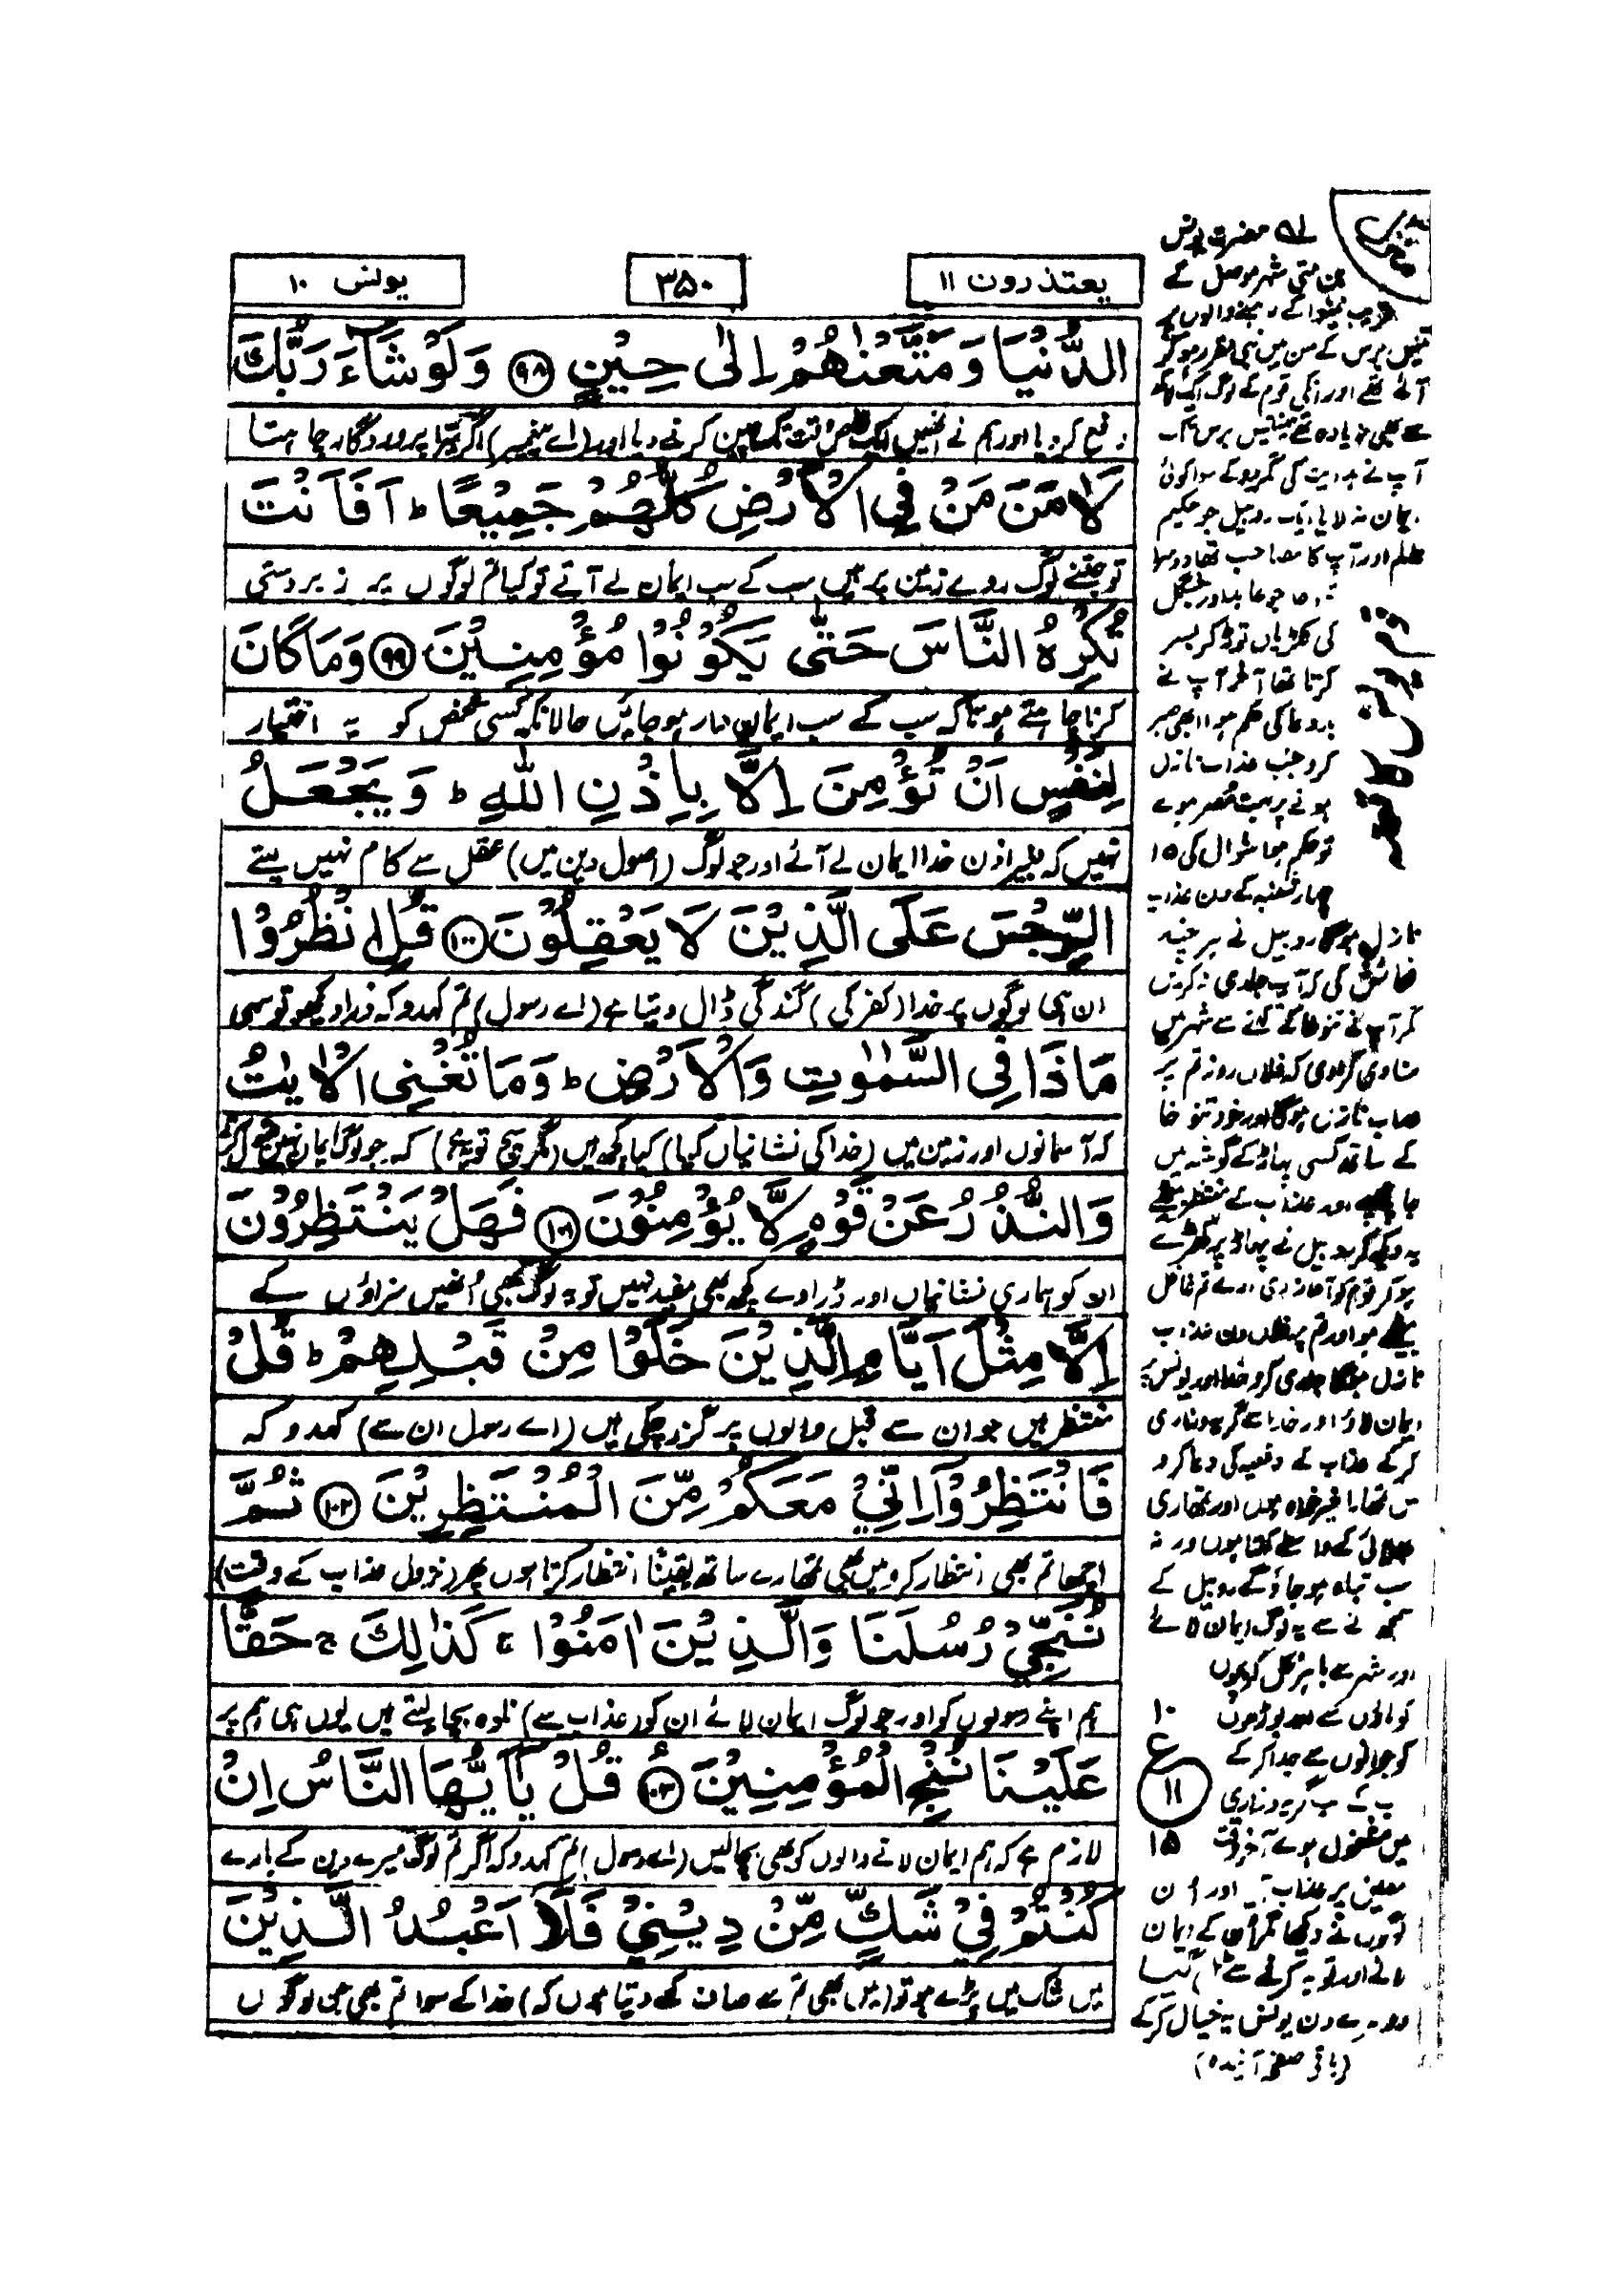 یعتذرون ۱۱
۳۵۰
یونس ۱۰
الدُّنْیَا وَمَتَّعْنٰهُمْ اِلٰی حِیْنٍ ۹۸ وَلَوْ شَآءَ رَبُّكَ
دفع کر دیا اور ہم نے انھیں ایک وقت تک چین کرنے دیا اور (اے پیغمبر) اگر تیرا پروردگار چاہتا
لَاٰمَنَ مَنْ فِی الْاَرْضِ كُلُّهُمْ جَمِیْعًا ط اَفَاَنْتَ
تو جتنے لوگ روے زمین پر ہیں سب کے سب ایمان لے آتے تو کیا تم لوگوں پر زبردستی
تُكْرِهُ النَّاسَ حَتّٰی یَكُوْنُوْا مُؤْمِنِیْنَ ۹۹ وَمَا كَانَ
کرنا چاہتے ہو تاکہ سب کے سب ایماندار ہو جائیں حالانکہ کسی شخص کو یہ اختیار
لِنَفْسٍ اَنْ تُؤْمِنَ اِلَّا بِاِذْنِ اللّٰهِ ط وَیَجْعَلُ
نہیں کہ بغیر اذن خدا ایمان لے آئے اور جو لوگ (اصول دین میں) عقل سے کام نہیں لیتے
الرِّجْسَ عَلَی الَّذِیْنَ لَا یَعْقِلُوْنَ ۱۰۰ قُلِ انْظُرُوْا
ان ہی لوگوں پر خدا (کفر کی) گندگی ڈال دیتا ہے (اے رسول) تم کہدو کہ ذرا دیکھو تو سہی
مَاذَا فِی السَّمٰوٰتِ وَالْاَرْضِ ط وَمَا تُغْنِی الْاٰیٰتُ
کہ آسمانوں اور زمین میں (خدا کی نشانیاں کیا) کیا کچھ ہیں (مگر سچ تو یہ ہے) کہ جو لوگ ایمان نہیں
وَالنُّذُرُ عَنْ قَوْمٍ لَّا یُؤْمِنُوْنَ ۱۰۱ فَهَلْ یَنْتَظِرُوْنَ
ان کو ہماری نشانیاں اور ڈراوے کچھ بھی مفید نہیں تو یہ لوگ بھی انھیں سزاؤں کے
اِلَّا مِثْلَ اَیَّامِ الَّذِیْنَ خَلَوْا مِنْ قَبْلِهِمْ ط قُلْ
منتظر ہیں جو ان سے قبل والوں پر گزر چکی ہیں (اے رسول ان سے) کہدو کہ
فَانْتَظِرُوْٓا اِنِّیْ مَعَكُمْ مِّنَ الْمُنْتَظِرِیْنَ ۱۰۲ ثُمَّ
اچھا تم بھی انتظار کرو میں بھی تمھارے ساتھ یقیناً انتظار کرتا ہوں پھر (نزول عذاب کے وقت)
نُنَجِّیْ رُسُلَنَا وَالَّذِیْنَ اٰمَنُوْا كَذٰلِكَ ج حَقًّا
ہم اپنے رسولوں کو اور جو لوگ ایمان لائے ان کو (عذاب سے) تلوہ بچا لیتے ہیں یوں ہی ہم پر
عَلَیْنَا نُنْجِ الْمُؤْمِنِیْنَ ۱۰۳ قُلْ یٰٓاَیُّهَا النَّاسُ اِنْ
لازم ہے کہ ہم ایمان لانے والوں کو بھی بچا لیں (اے رسول) تم کہدو کہ اگر تم لوگ میرے دین کے بارے
كُنْتُمْ فِیْ شَكٍّ مِّنْ دِیْنِیْ فَلَآ اَعْبُدُ الَّذِیْنَ
میں شک میں پڑے ہو تو (میں بھی تم سے صاف کہے دیتا ہوں کہ) خدا کے سوا تم بھی جن لوگوں
حضرت یونس
بن متی شہر موصل کے
قریب نینوا کے رہنے والوں
تیس برس کے سن میں نبی مقرر ہو کر
آئے تھے اور انکی قوم کے لوگ ایک لاکھ
سے بھی زیادہ تھے تینتیس برس تک
آپ نے ہدایت کی مگر دو کے سوا کوئی
ایمان نہ لایا ایک روبیل جو حکیم
عالم اور آپ کا مصاحب تھا دوسرا
جو عابد اور جنگل
کی لکڑیاں توڑ کر بسر
کرتا تھا آخر آپ نے
بددعا کی حکم ہوا ابھی صبر
کرو جب عذاب نازل
ہونے پر بہت مصر ہوے
تو حکم ہوا شوال کی ۱۵
چہار شنبہ کے دن عذاب
نازل ہوگا روبیل نے ہر چند
کی کہ آپ جلدی نہ کریں
مگر آپ نے تنوخا کے کہنے سے شہر میں
منادی کرا دی کہ فلاں روز تم پر
عذاب نازل ہوگا اور خود تنوخا
کے ساتھ کسی پہاڑ کے گوشہ میں
جا اور عذاب کے منتظر
یہ دیکھ کر روبیل نے پہاڑ پر کھڑے
ہو کر قوم کو آواز دی ارے تم غافل
ہو اور تم پر فلاں دن عذاب
نازل ہوگا جلدی کرو خدا اور یونس پر
ایمان لاؤ اور خدا سے گریہ و زاری
کرکے عذاب کے دفعیہ کی دعا کرو
میں تمھارا خیر خواہ ہوں اور تمھاری
بھلائی کے واسطے کہتا ہوں ورنہ
سب تباہ ہو جاؤ گے روبیل کے
سمجھانے سے یہ لوگ ایمان لائے
اور شہر سے باہر نکل کر بچوں
کو ماؤں سے اور بوڑھوں
کو جوانوں سے جدا کرکے
سب کے سب گریہ و زاری
میں مشغول ہوے آخر وقت
معین پر عذاب آیا اور ان
لوگوں نے دیکھا مگر ان کے ایمان
لانے اور توبہ کرنے سے ٹل گیا
دوسرے دن یونس یہ خیال کرکے
(باقی صفحہ آئندہ)
۱۰
ع
۱۱
۱۵